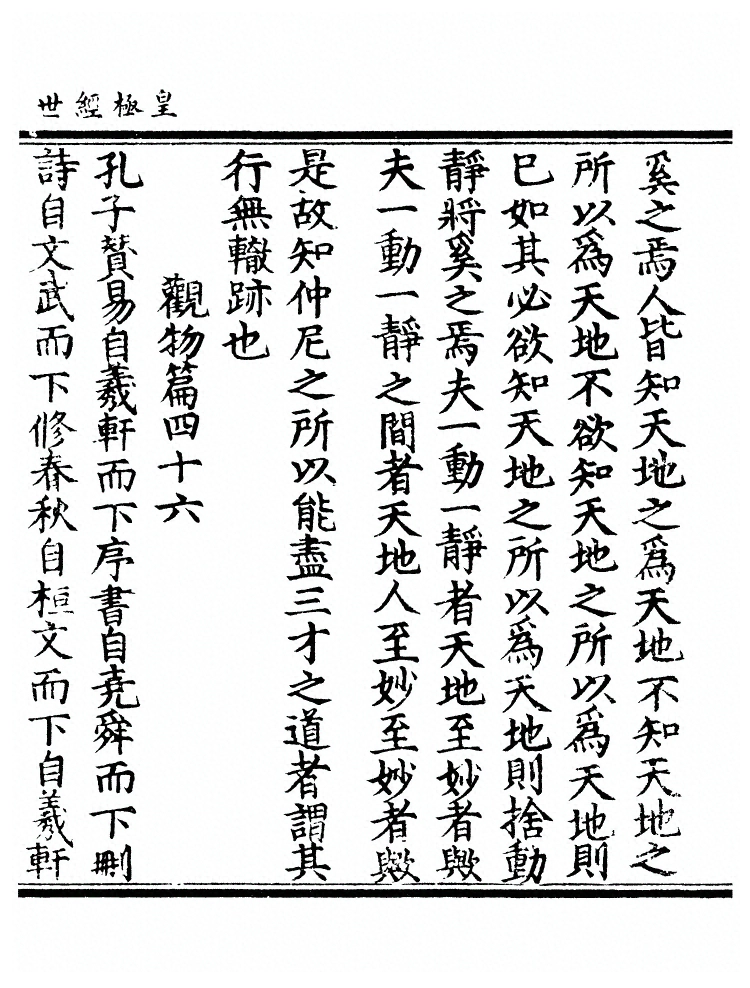 皇極經世
奚之焉人皆知天地之爲天地不知天地之
所以爲天地不欲知天地之所以爲天地則
已如其必欲知天地之所以爲天地則捨動
靜將奚之焉夫一動一靜者天地至妙者與
夫一動一靜之間者天地人至妙至妙者歟
是故知仲尼之所以能盡三才之道者謂其
行無轍跡也
觀物篇四十六
孔子贊易自羲軒而下序書自堯舜而下刪
詩自文武而下修春秋自桓文而下自羲軒